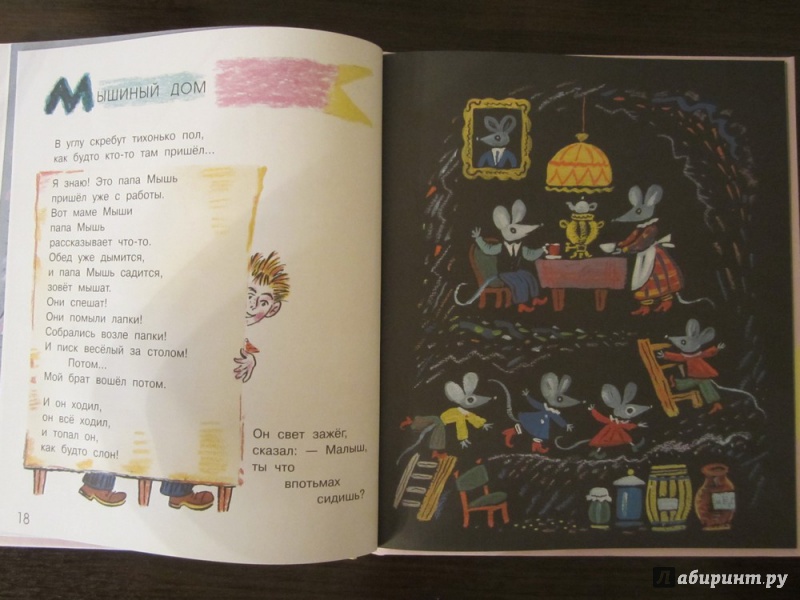 Мышиный дом
В углу скребут тихонько пол,
как будто кто-то там пришёл...
Я знаю! Это папа Мышь
пришёл уже с работы.
Вот маме Мыши
папа Мышь
рассказывает что-то.
Обед уже дымится,
и папа Мышь садится,
зовёт мышат.
Они спешат!
Они помыли лапки!
Собрались возле папки!
И писк весёлый за столом!
Потом...
Мой брат вошёл потом.
И он ходил,
он всё ходил,
и топал он,
как будто слон!
Он свет зажёг,
сказал: — Малыш,
ты что
впотьмах
сидишь?
18
Лабиринт.ру